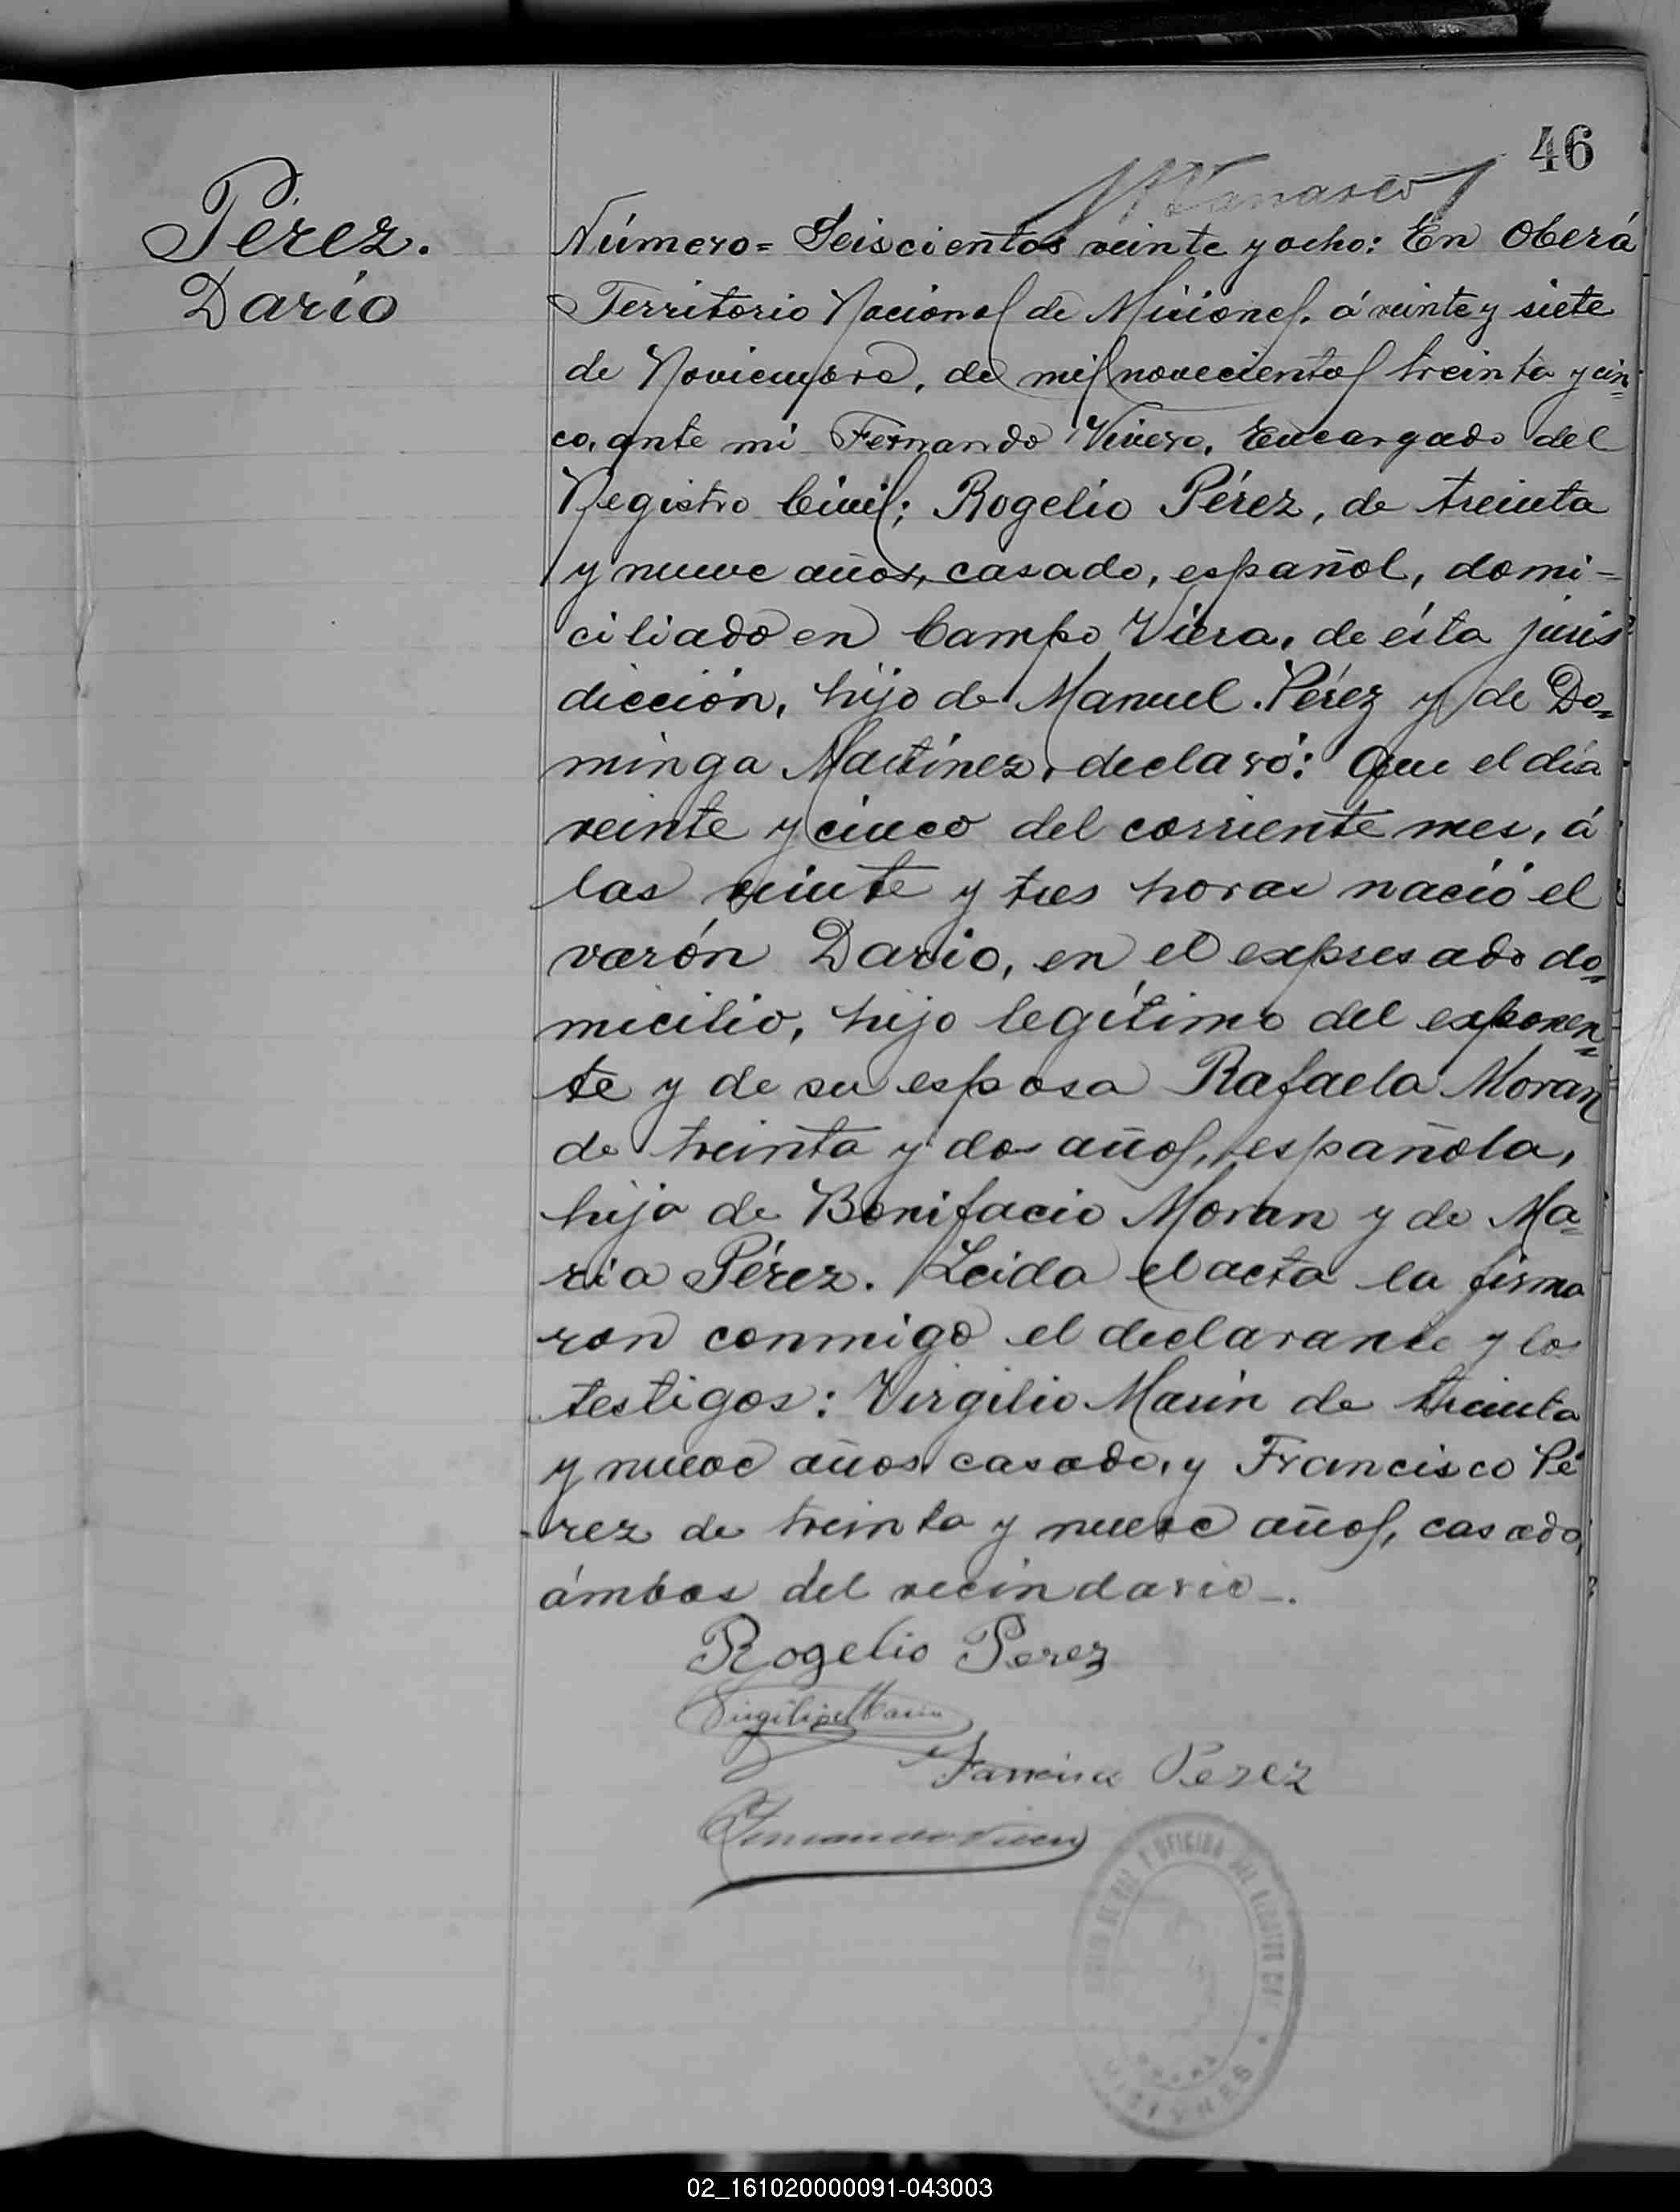 46
Pérez.
Darío
Número= Seiscientos veinte y ocho: En Oberá
Territorio Nacional de Misiones, á veinte y siete
de Noviembre, de mil novecientos treinta y cin=
co, ante mi Fernando Vivero, Encargado del
Registro Civil; Rogelio Pérez, de treinta
y nueve años, casado, español, domi-
ciliado en Campo Viera, de ésta juris
dicción, hijo de Manuel Pérez y de Do=
minga Martínez, declaró: Que el día
veinte y cinco del corriente mes, á
las veinte y tres horas nació el
varón Dario, en el expresado do=
micilio, hijo legítimo del exponen=
te y de su esposa Rafaela Moran
de treinta y dos años, española,
hija de Bonifacio Moran y de Ma=
ria Pérez. Leida el acta la firma
ron conmigo el declarante y los
testigos: Virgilio Marin de treinta
y nueve años casado, y Francisco Pé
rez de treinta y nueve años, casado,
ámbos del vecindario-.
Rogelio Perez
Virgilio Marin
Francisco Perez
Fernando Vivero
OFICINA DEL REGISTRO CIVIL
MISIONES
02_161020000091-043003